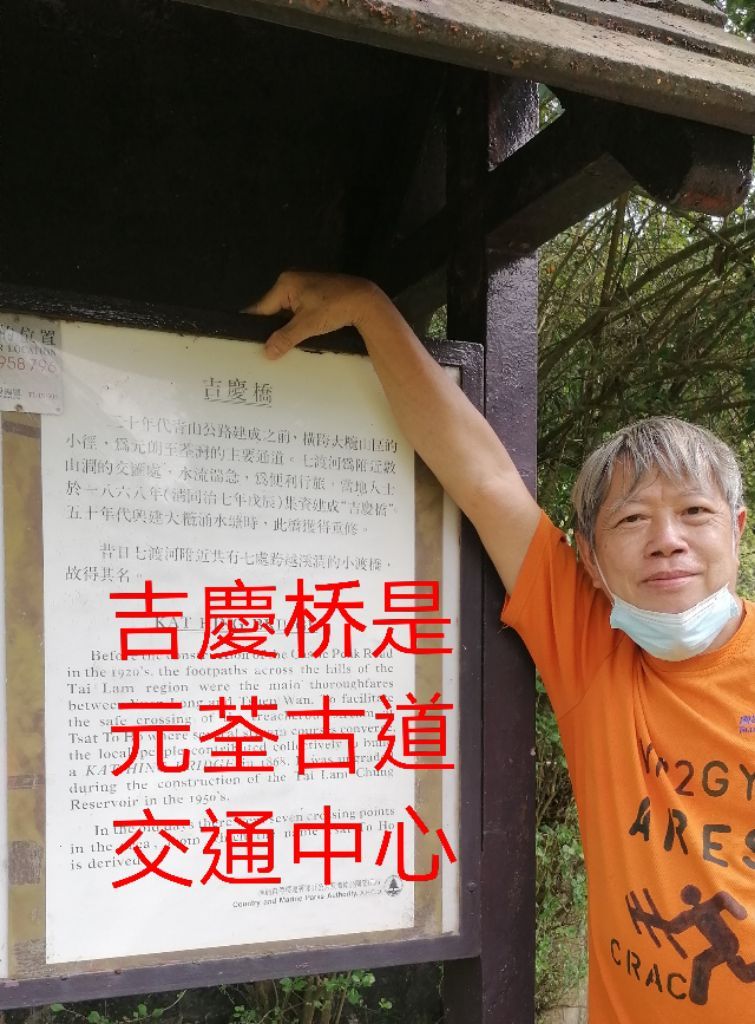 的位置
R LOCATION
958796
吉慶橋
二十年代青山公路建成之前，橫跨大欖山區的
小徑，爲元朗至荃灣的主要通道。七渡河爲附近數
山澗的交匯處，水流湍急，爲便利行旅，當地人士
於一八六八年(淸同治七年戊辰)集資建成"吉慶橋"
五十年代興建大欖涌水塘時，此橋獲得重修。
昔日七渡河附近共有七處跨越溪澗的小渡橋，
故得其名。
吉慶桥是
元荃古道
交通中心
KAT HING BRIDGE
Before the construction of the Castle Peak Road
in the 1920's, the footpaths across the hills of the
Tai Lam region were the main thoroughfares
between Yuen Long and Tsuen Wan. To facilitate
the safe crossing of the treacherous stream
Tsat To Ho where several stream courses converge
the local people contributed collectively to build
a KAT HING BRIDGE in 1868. It was upgraded
during the construction of the Tai Lam Chung
Reservoir in the 1950's.
In the old days there were seven crossing points
in the area, from which the name Tsat To Ho
is derived.
Country and Marine Parks Authority,
2GY
ARES
CRAC